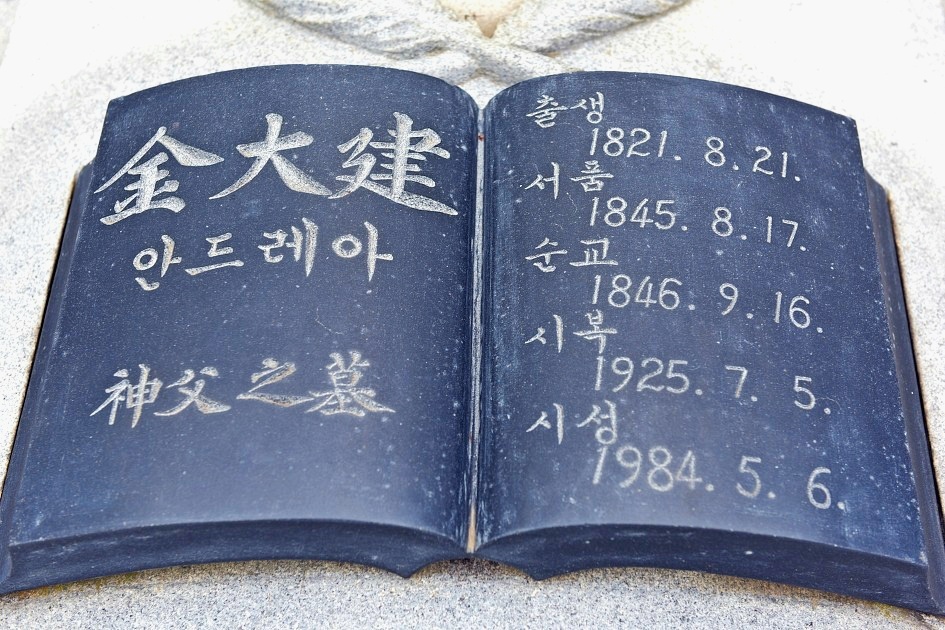 金大建
안드레아
神父之墓
출생
1821. 8. 21.
서품
1845. 8. 17.
순교
1846. 9. 16.
시복
1925. 7. 5.
시성
1984. 5. 6.